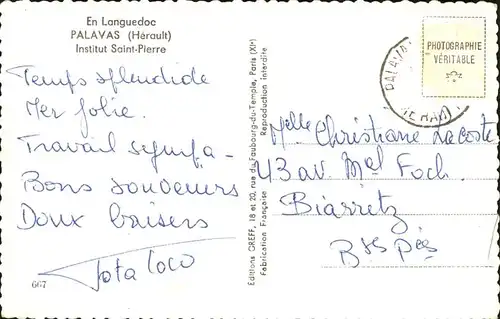 En Languedoc
PALAVAS (Hérault)
Institut Saint-Pierre
Temps splendide
Mer jolie.
Travail sympa -
Bons souvenirs
Doux baisers
Tota Loco
667
Editions CREFF, 18 et 20, rue du Faubourg-du-Temple, Paris (XIe)
Fabrication Française Reproduction interdite
PHOTOGRAPHIE
VÉRITABLE
PALAVAS
Melle Christiane Lacoste
43 av. Mal Foch.
Biarritz
Bses Pées